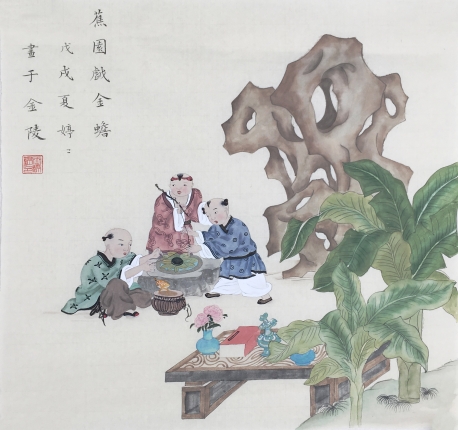 蕉園戲金蟾
戊戌夏婷々
畫于金陵